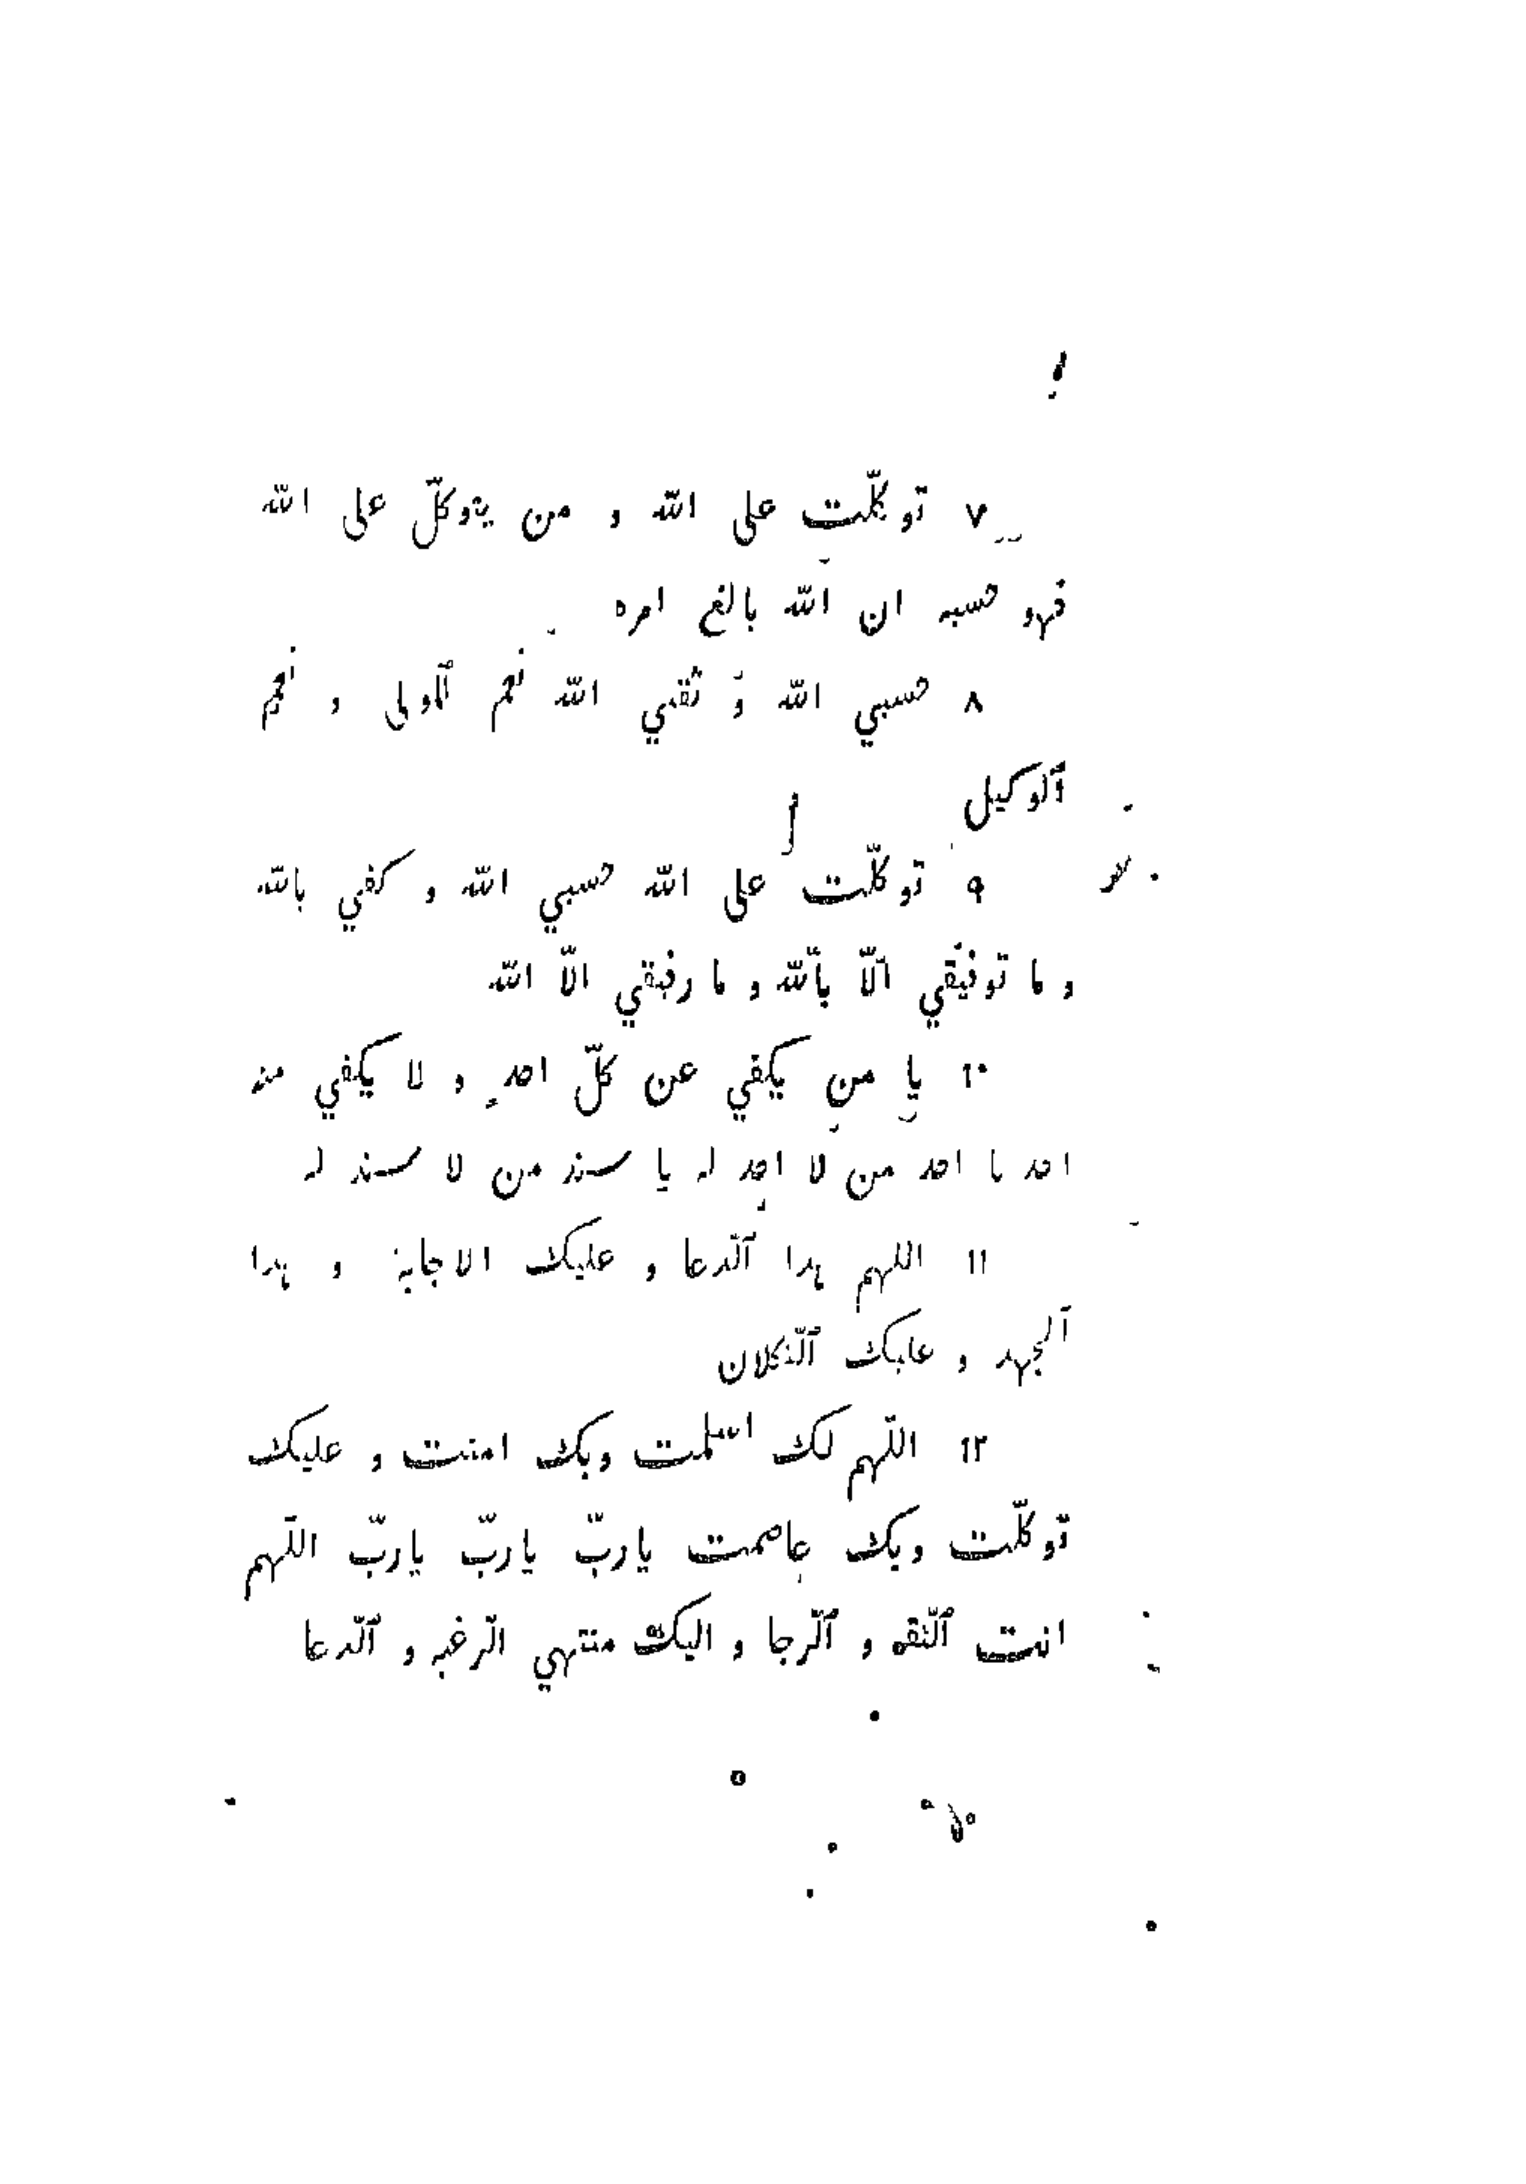 ٧ توكّلت على الله و من يتوكلّ على الله
فهو حسبه ان الله بالغ امره
٨ حسبي الله و ثقتي الله نعم ٱلمولى و نعم
ٱلوكيل
٩ توكّلت على الله حسبي الله و كفي بالله
و ما توفيقي الّا بٱلله و ما رفيقي الّا الله
١٠ يا من يكفي عن كلّ احدٍ و لا يكفي منه
احد يا احد من لا احد له يا سند من لا سند له
١١ اللهم هذا ٱلّدعا و عليك الاجابة و هذا
ٱلجهد و عليك ٱلتّكلان
١٢ اللّهم لك اسلمت وبك امنت و عليك
توكّلت وبك عاصمت ياربّ ياربّ ياربّ اللّهم
انت ٱلثّقه و ٱلّرجا و اليك منتهي الّرغبه و ٱلّدعا